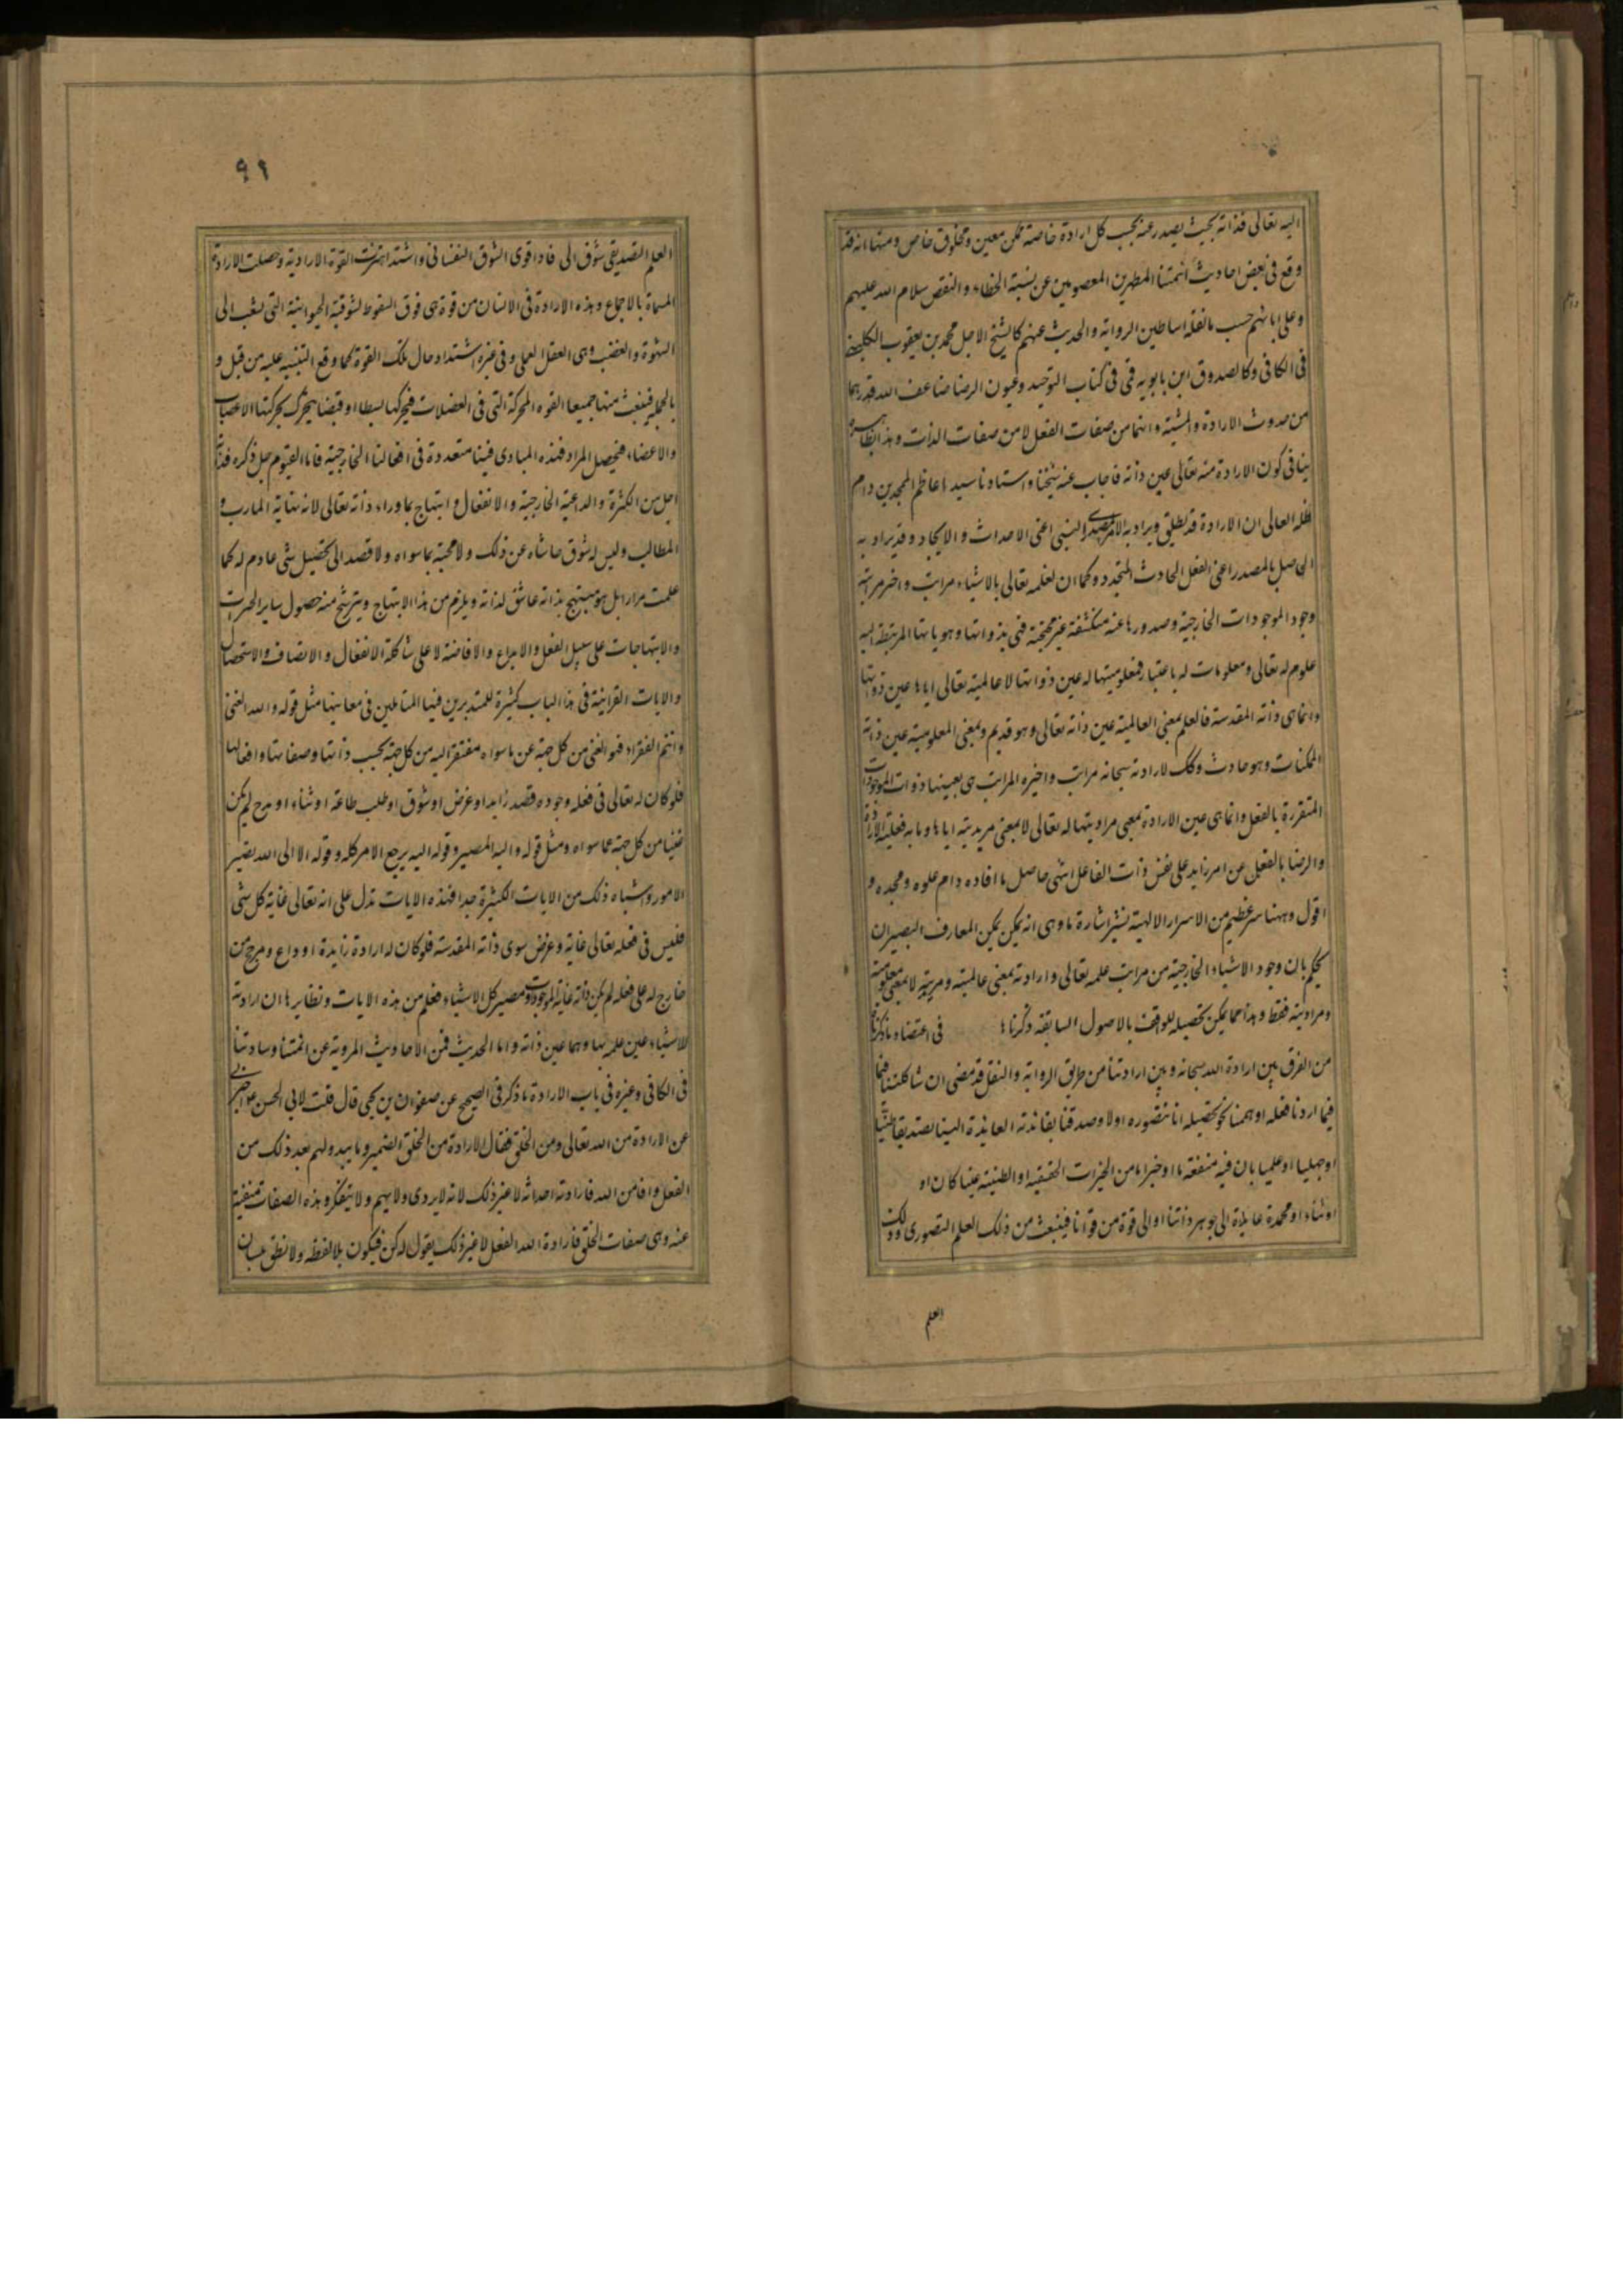 اليه تعالى فذاته بحيث يصدر عنه بحسب كل ارادة خاصة ممكن معين ومخلوق خاص ومنها انه قد
وقع فى بعض احاديث ائمتنا المطهرين المعصومين عن نسبة الخطاء والنقص سلام الله عليهم
وعلى ابائهم حسب ما نقله اساطين الرواية والحديث عنهم كالشيخ الاجل محمد بن يعقوب الكلينى
فى الكافى وكالصدوق ابن بابويه قمى فى كتاب التوحيد وعيون الرضا ضاعف الله قدرهما
من حدوث الارادة والمشية وانهما من صفات الفعل لا من صفات الذات وهذا بظاهره
ينافى كون الارادة منه تعالى عين ذاته فاجاب عنه شيخنا واستادنا سيد اعاظم المجدين دام
ظله العالى ان الارادة قد يطلق ويراد به الامر المصدرى النسبى اعنى الاحداث والايجاد وقد يراد به
الحاصل بالمصدر اعنى الفعل الحادث المتجدد وكما ان لعلمه تعالى بالاشياء مراتب واخر مرتبة
وجود الموجودات الخارجية وصدورها عنه منكشفة غير محتجبة فهى بذواتها وهوياتها المرتبطة اليه
علوم له تعالى ومعلومات له باعتبار فمعلوميتها له عين ذواتها لا عالميته تعالى اياها عين ذواتها
وانما هى ذاته المقدسة فالعلم بمعنى العالمية عين ذاته تعالى وهو قديم وبمعنى المعلومية عين ذات
الممكنات وهو حادث وكك لارادته سبحانه مراتب واخيرة المراتب هى بعينها ذوات الموجودات
المتقررة بالفعل وانما هى عين الارادة بمعنى مراديتها له تعالى لا بمعنى مريديته اياها وما به فعلية الارادة
والرضا بالفعل عن امر زايد على نفس ذات الفاعل انتهى حاصل ما افاده دام علوه ومجده و
اقول وههنا سر عظيم من الاسرار الالهية نشير اشارة ما وهى انه يمكن المعارف البصير ان
يحكم بان وجود الاشياء الخارجية من مراتب علمه تعالى وارادته بمعنى عالميته ومريديته لا بمعنى معلوميته
ومراديته فقط وهذا مما يمكن تحصيله للواقف بالاصول السابقة ذكرنا ها فى اعتضاد ما ذكرنا
من الفرق بين ارادة الله سبحانه وبين ارادتنا من طريق الرواية والنقل قد مضى ان شاكلتنا فيما
فيما اردنا فعله او هممنا نحو تحصيله انا نتصوره اولا وصدقنا بفائدته العائدة الينا تصديقا ظنيا
او جهليا او علميا بان فيه منفعة ما او خيرا ما من الخيرات الحقيقية او الظنية عينا كان او
او ثناء او محمدة عايدة الى جوهر ذاتنا او الى قوة من قوانا فينبعث من ذلك العلم التصورى وذلك
العلم
٩٩
العلم التصديقى شوق الى فاذا قوى الشوق النفسانى واشتد اهتزت القوة الارادية وحصلت الارادة
المسماة بالاجماع وهذه الارادة فى الانسان من قوة هى فوق الشوقية الحيوانية التى تشعب الى
الشهوة والغضب وهى العقل العملى وفى غيره اشتداد حال تلك القوة كما وقع التنبيه عليه من قبل و
بالجملة فينبعث منها جميعا القوه المحركة التى فى العضلات فيحركها بسطا او قبضا يتحرك بحركتها الاعصاب
والاعضاء فيحصل المراد فهذه المبادى فينا متعددة فى افعالنا الخارجية فاما القيوم جل ذكره فذاته
اجل من الكثرة والداعية الخارجية والانفعال وابتهاج بما وراء ذاته تعالى لانه نهاية المارب و
المطالب وليس له شوق حاشاه عن ذلك ولا محبة بما سواه ولا قصد الى تحصيل شئ عادم له كما
علمت مرارا بل هو مبتهج بذاته عاشق لذاته ويلزم من هذا الابتهاج ويترشح منه حصول ساير الخيرات
والابتهاجات على سبيل الفعل والابداع والافاضة لا على شاكلة الانفعال والاتصاف والاستحصال
والايات القرانية فى هذا الباب كثيرة للمتدبرين فيها المتاملين فى معانيها مثل قوله والله الغنى
وانتم الفقراء فهو الغنى من كل جهة عن ما سواه مفتقر اليه من كل جهة بحسب ذاتها وصفاتها وافعالها
فلو كان له تعالى فى فعله وجوده قصد زايد او غرض او شوق او طلب طاعة او ثناء او مدح لم يكن
غنيا من كل جهة عما سواه ومثل قوله واليه المصير وقوله اليه يرجع الامر كله وقوله الا الى الله تصير
الامور واشباه ذلك من الايات الكثيرة جدا فهذه الايات تدل على انه تعالى غاية كل شئ
فليس فى فعله تعالى غاية وغرض سوى ذاته المقدسة فلو كان له ارادة زايدة او داع ومرجح من
خارج له على فعله لم يكن ذاته غاية الموجودات ومصير كل الاشياء فعلم من هذه الايات ونظايرها ان ارادته
للاشياء عين علمه بها وهما عين ذاته واما الحديث فمن الاحاديث المروية عن ائمتنا وساداتنا
فى الكافى وغيره فى باب الارادة ما ذكر فى الصحيح عن صفوان بن يحيى قال قلت لابى الحسن ع اخبرنى
عن الارادة من الله تعالى ومن الخلق فقال الارادة من الخلق الضمير وما يبدو لهم بعد ذلك من
الفعل واما من الله فارادته احداثه لا غير ذلك لانه لا يروى ولا يهم ولا يتفكر وهذه الصفات منفية
عنه وهى صفات الخلق فارادة الله الفعل لا غير ذلك يقول له كن فيكون بلا لفظ ولا نطق بلسان